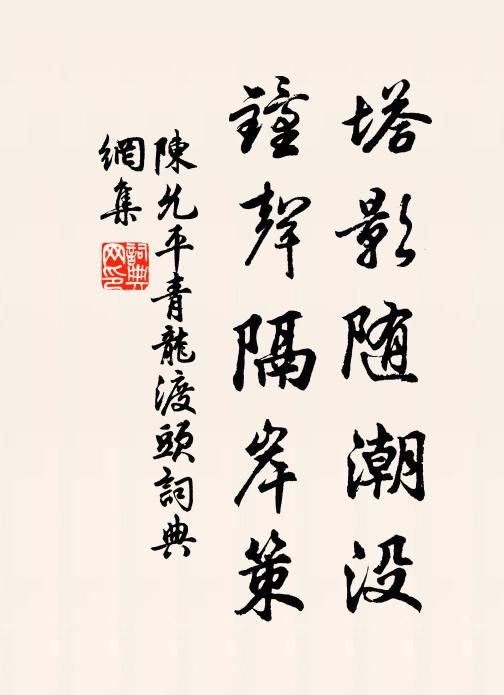 塔影随潮没
鐘聲隔岸策
陳允平青龍渡頭詞典
網集
詞典網印